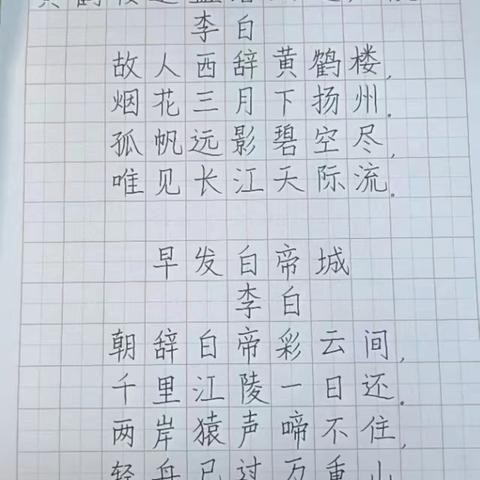 李白
故人西辞黄鹤楼,
烟花三月下扬州.
孤帆远影碧空尽,
唯见长江天际流.
早发白帝城
李白
朝辞白帝彩云间,
千里江陵一日还.
两岸猿声啼不住,
轻舟已过万重山